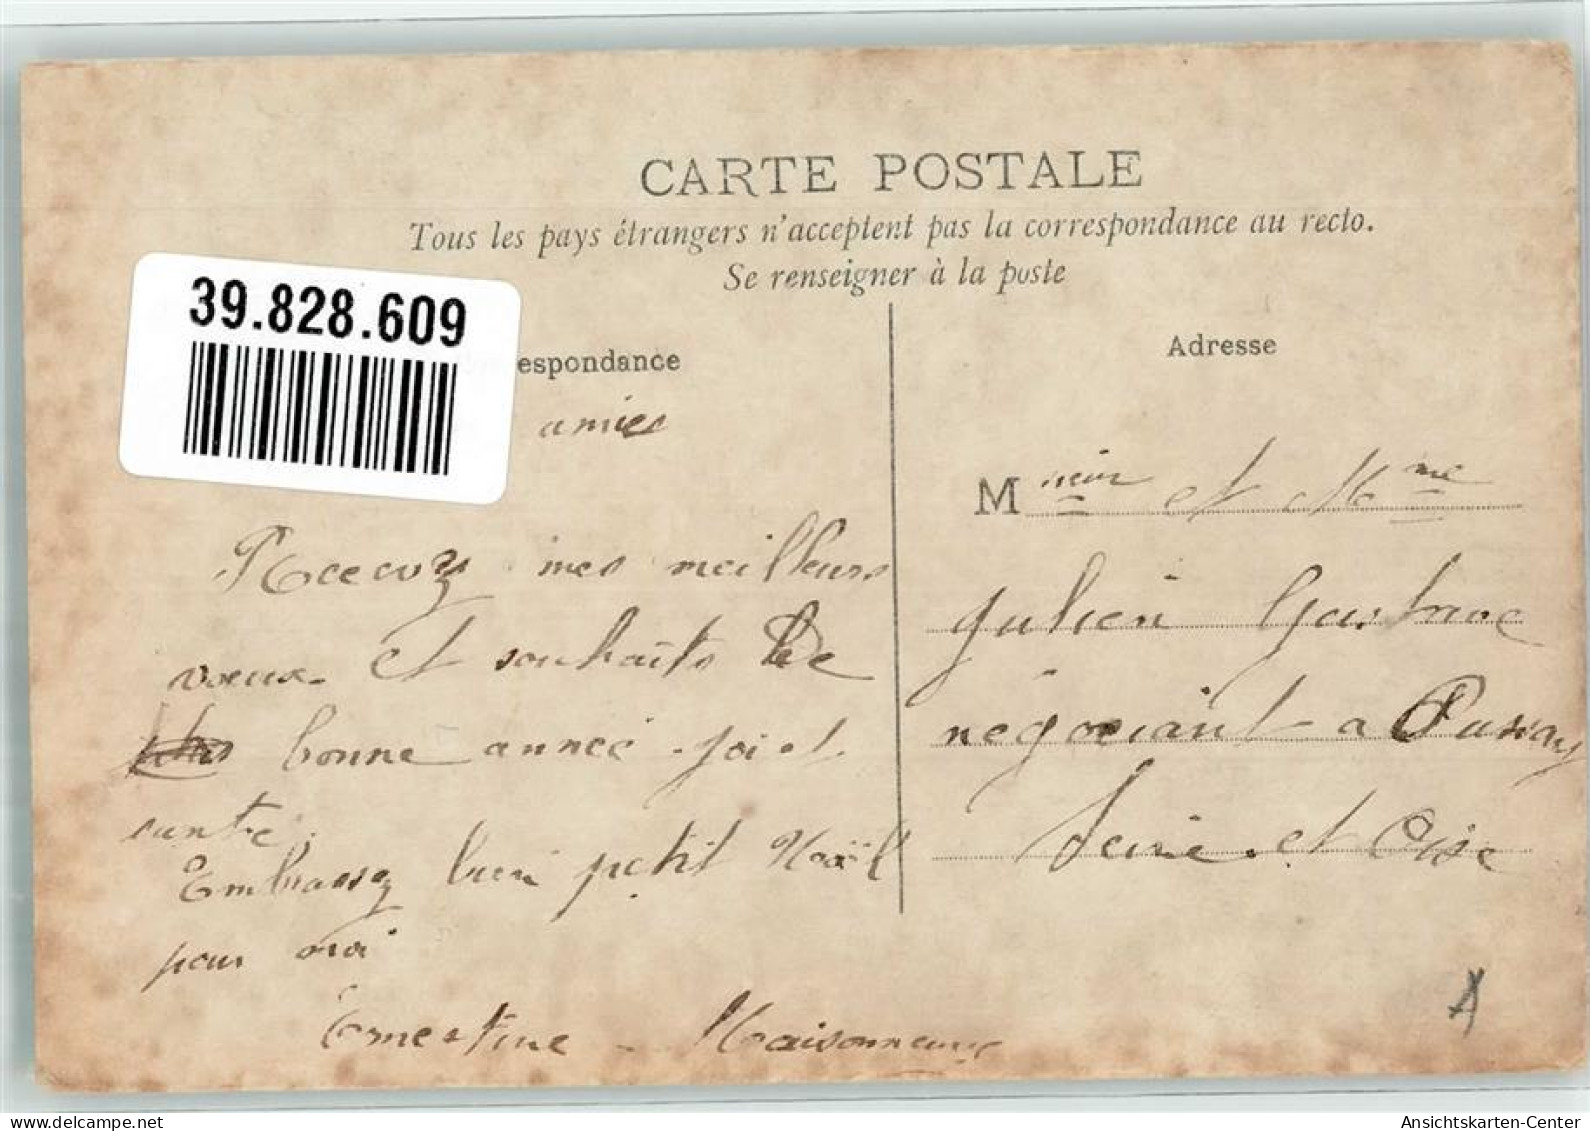 CARTE POSTALE
Tous les pays étrangers n'acceptent pas la correspondance au recto.
Se renseigner à la poste
39.828.609
espondance
amies
Recevez mes meilleurs
vœux et souhaits de
bonne année joi et
santé.
Embrassez bien petit Noël
pour moi
Ernestine - Maisonneuve
Adresse
Mneiur et Mme
Julien Gustave
négociant a
Seine et Oise
delcampe.net
Ansichtskarten-Center